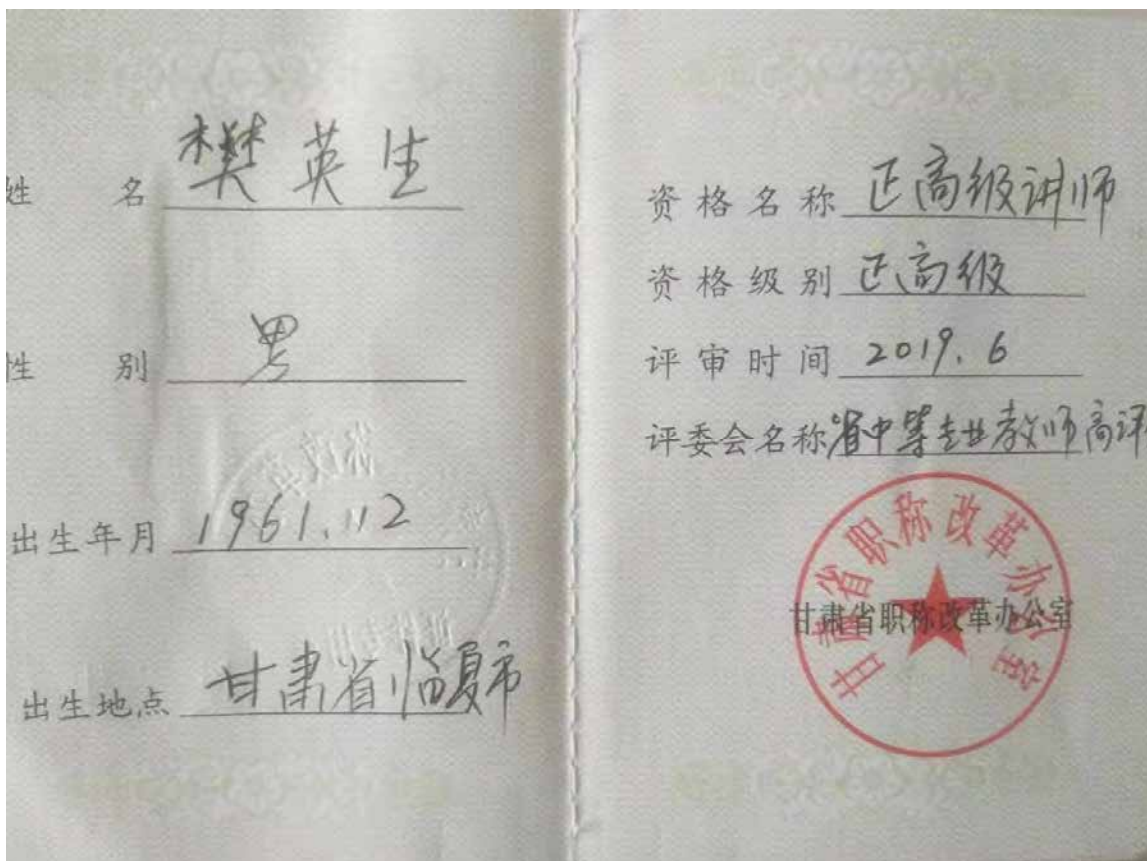 姓 名 樊英生
性 别 男
出生年月 1961.12
出生地点 甘肃省临夏市
资格名称 正高级讲师
资格级别 正高级
评审时间 2019.6
评委会名称 省中等专业教师高评
甘肃省职称改革办公室
甘肃省职称改革办公室